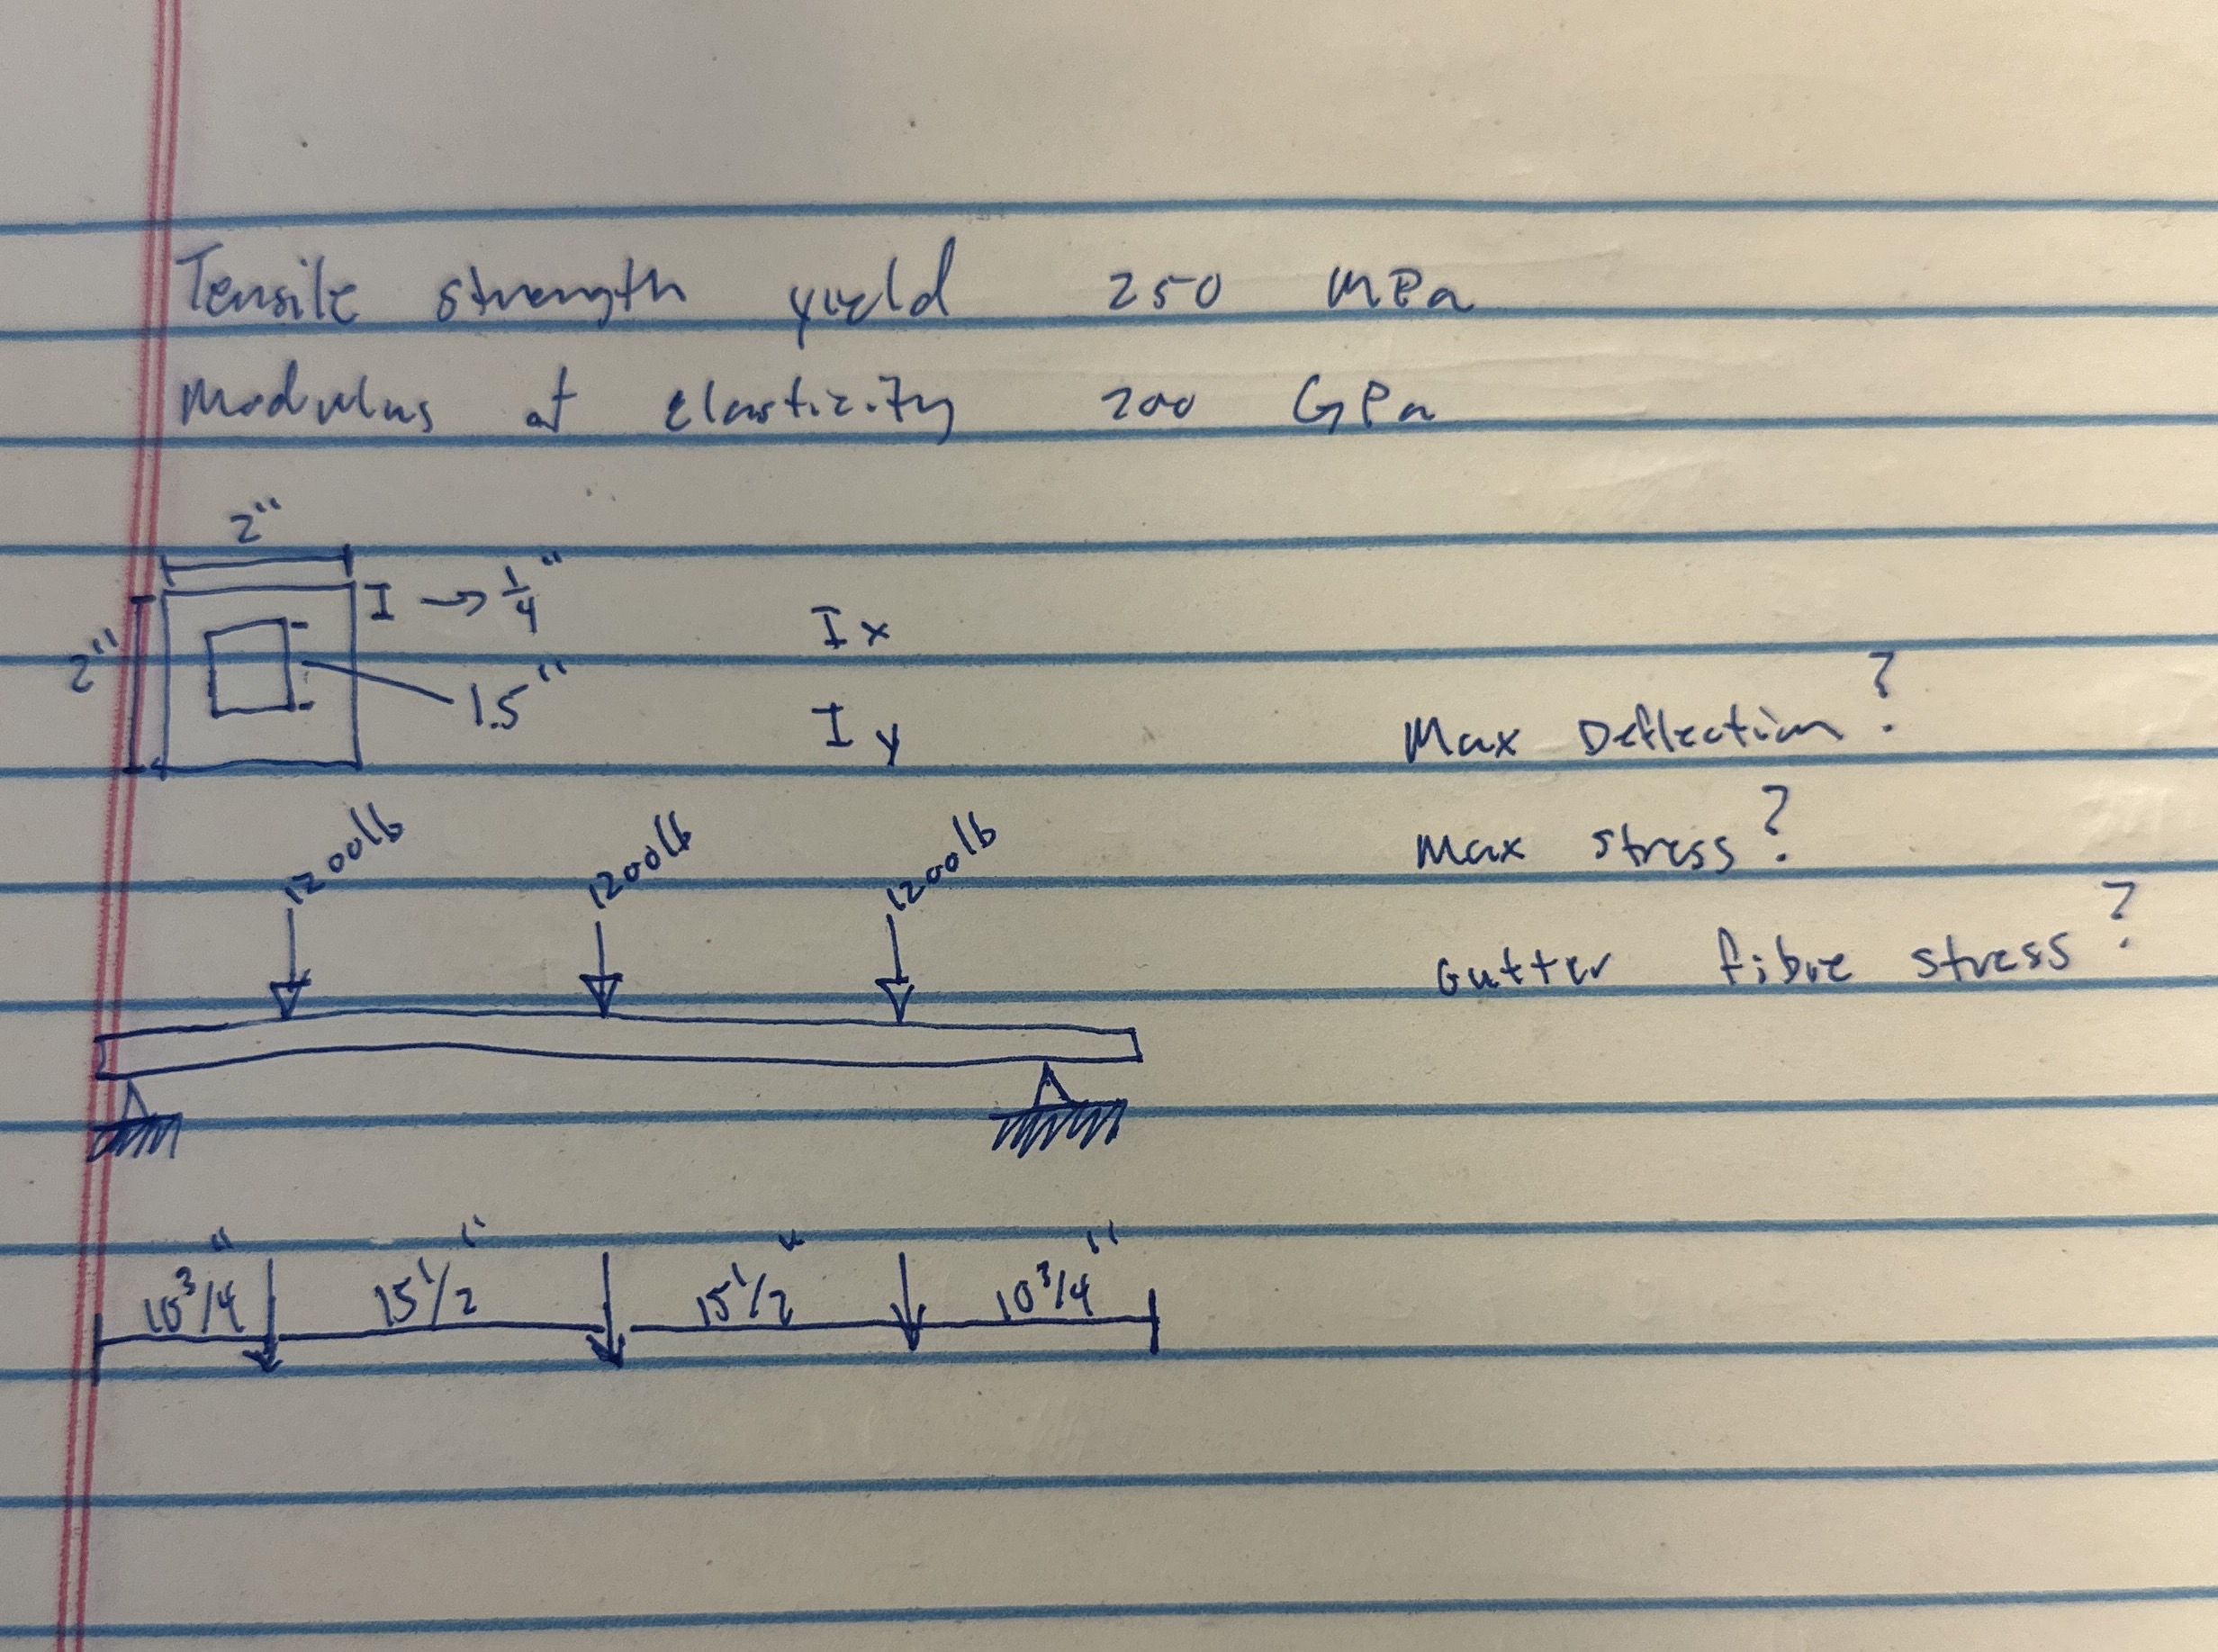 Tensile strength yield 250 MPa
Modulus of elasticity 200 GPa
2"
I → 1/4"
2"
1.5"
Ix
Iy
Max Deflection?
Max stress?
Outter fibre stress?
1200lb 1200lb 1200lb
10 3/4" 15 1/2" 15 1/2" 10 3/4"